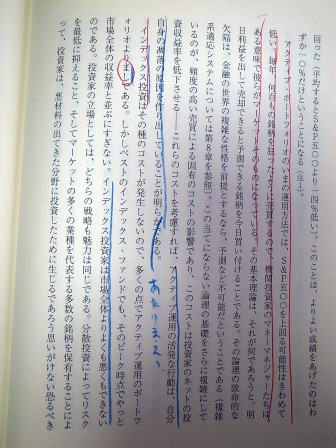 回った（平均するとS&P五〇〇より一四%低い）。このことは、よりよい成績をあげたのはわ
ずか一〇%だけということになる（注1）。
アクティブ・ポートフォリオのいまの運用方法では、S&P五〇〇を上回る可能性はきわめて
低い。毎年、何百もの銘柄を狂ったように売買するので、機関投資家のマネー・マネジャーたちは
ある意味で彼らがマーケットそのものになっている。その基本理論は、それが何であろうと、明
日利益を出して売却できると予測できる銘柄を今日買い付けることである。その論理の致命的な
欠陥は、金融の世界の複雑な性格を前提とするなら、予測など不可能だということである（複雑
系適応システムについては第8章を参照）。この当てにならない論理の基礎をさらに複雑にして
いるのが、頻度の高い売買による固有のコストの影響であり、このコストは投資家のネットの投
資収益率を低下させる。これらのコストを考慮すれば、アクティブ運用の活発な行動は、自分
自身の凋落の原因を作り出していることが明らかである。
あたりまえ
インデックス投資はその種のコストが発生しないので、多くの点でアクティブ運用のポートフ
ォリオよりましである。しかしベストのインデックス・ファンドでも、そのピーク時点でやっと
市場全体の収益率と並ぶにすぎない。インデックス投資家は市場全体よりよくも悪くもできない
のである。投資家の立場としては、どちらの戦略も魅力は同じである。分散投資によってリスク
を最低に抑えること、そしてマーケットの多くの業種を代表する多数の銘柄を保有することによ
って、投資家は、悪材料の出てきた分野に投資したために生じるであろう思いがけない恐るべき